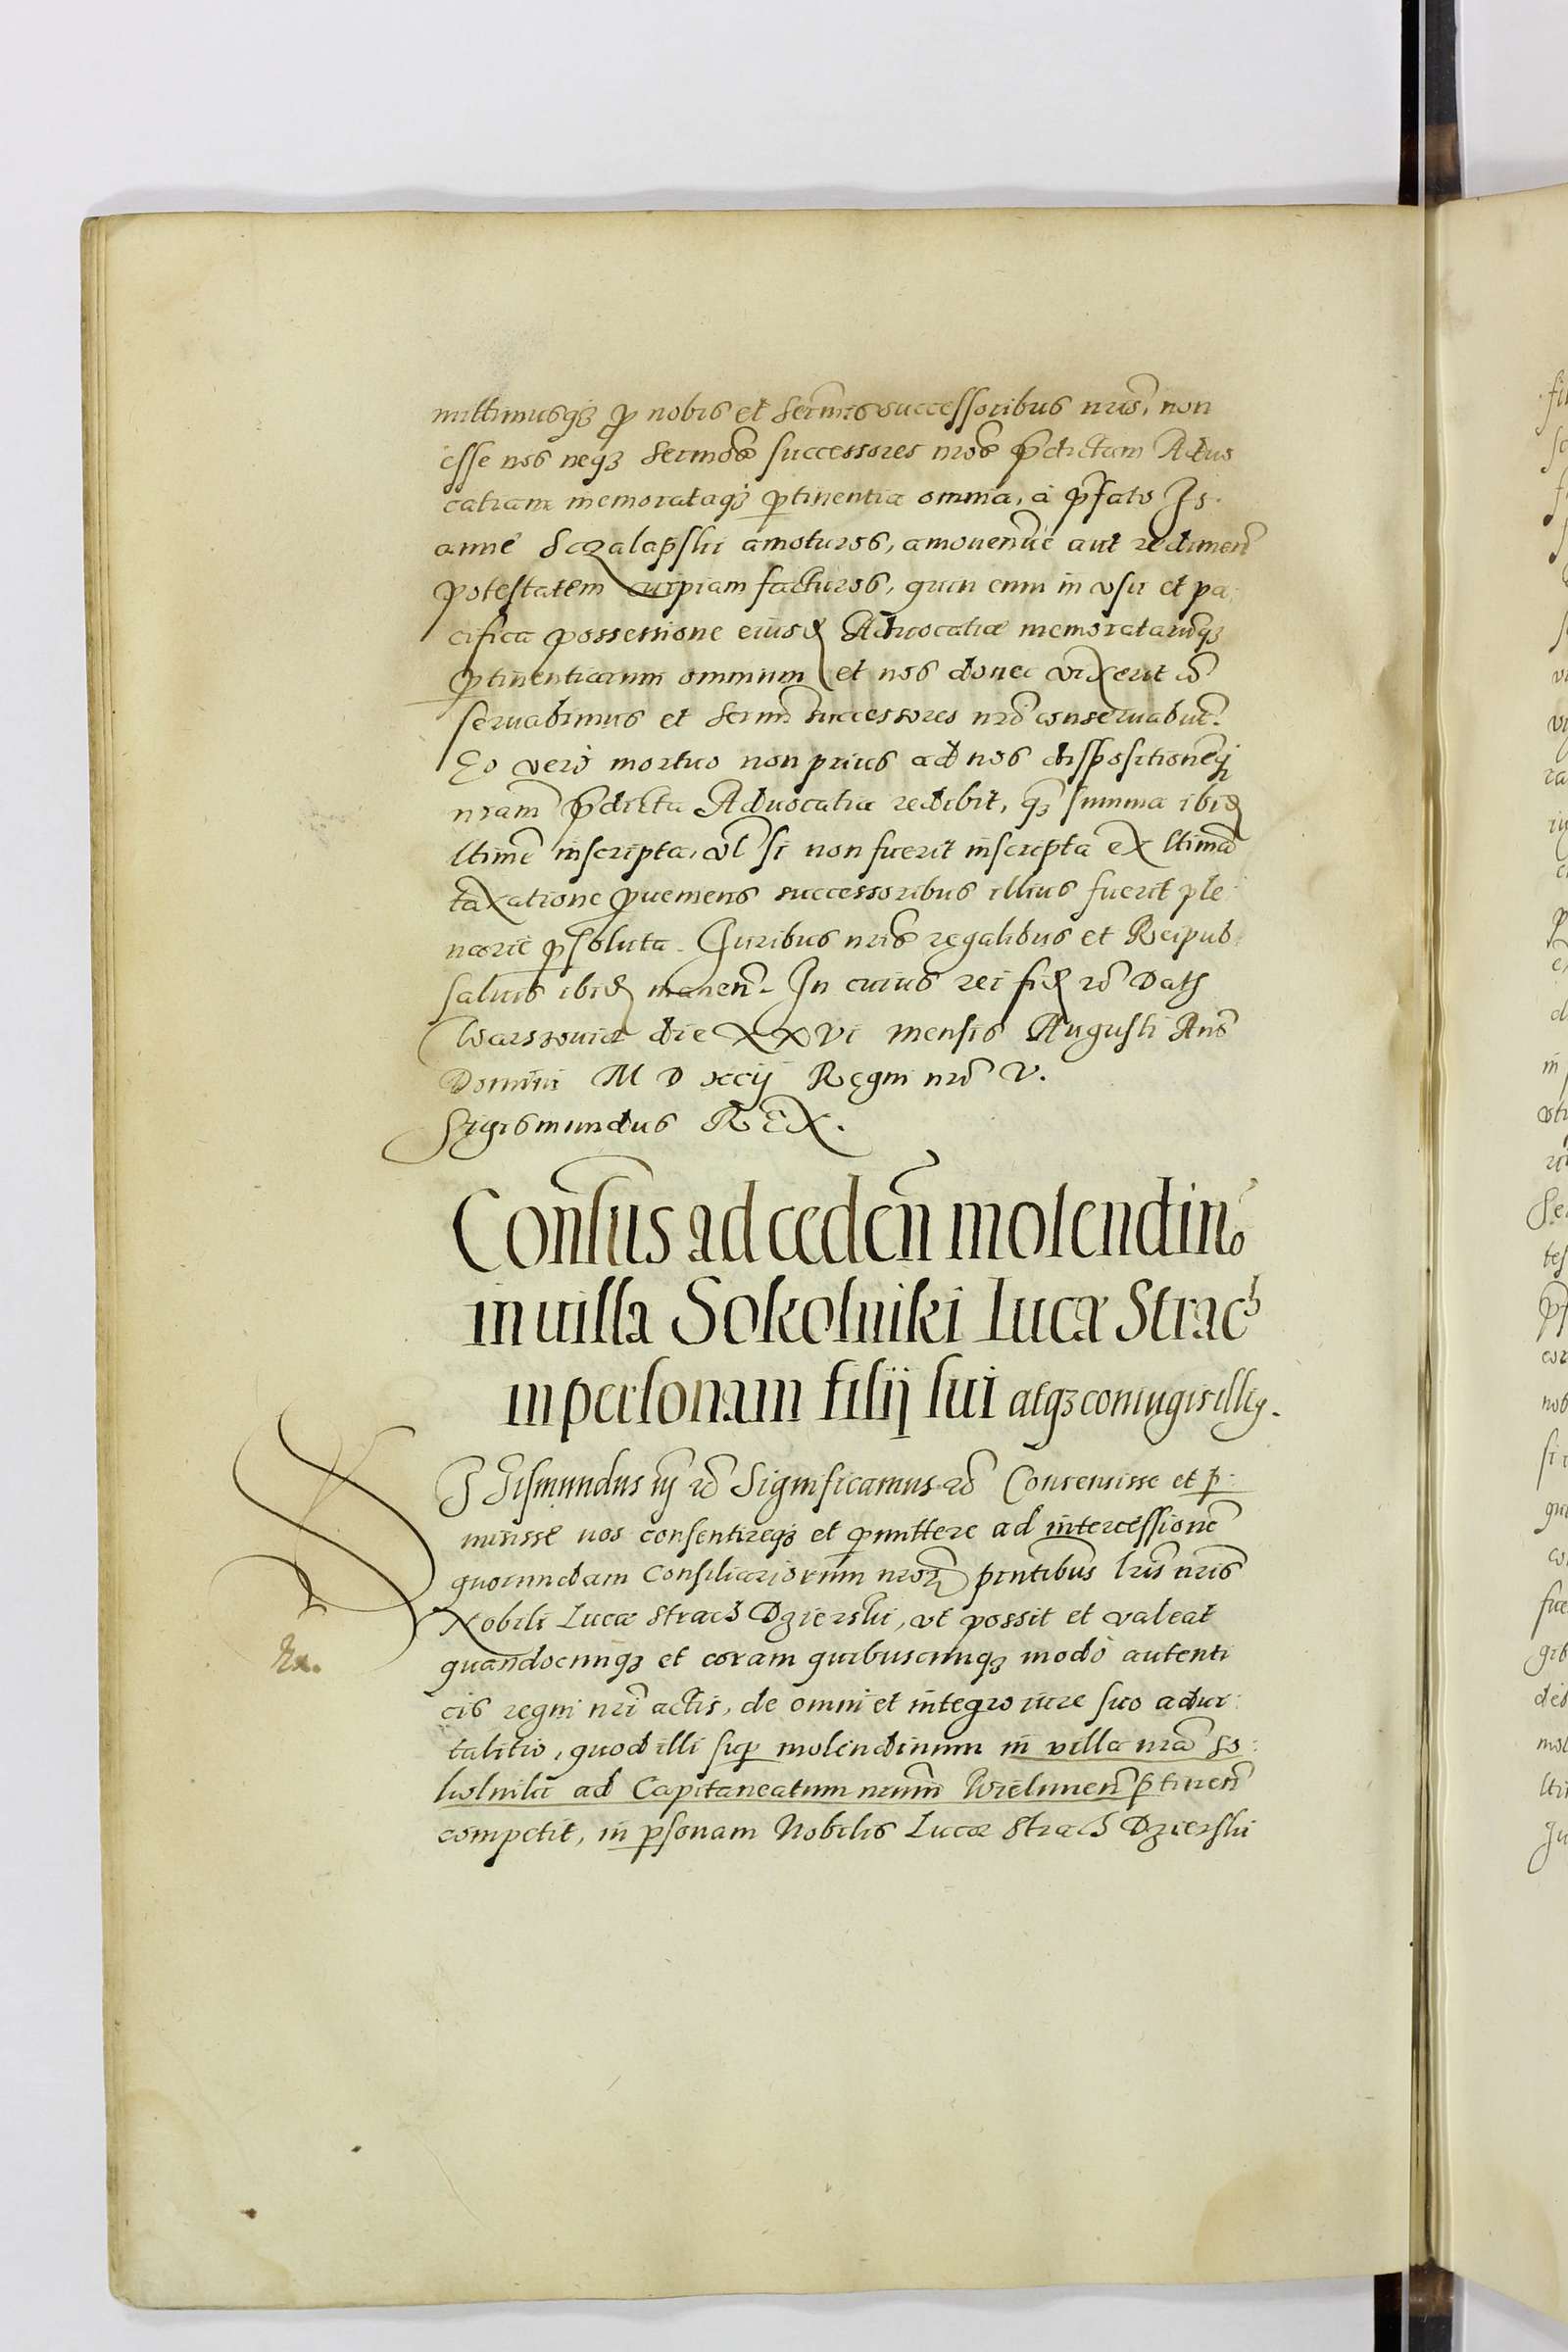 mittimusq3 p nobis et Sermis successoribus nris, non
esse nos neq3 Sermos successores nros pdictam Aduo
catiam memorataq3 ptinentia omnia, à pfato Jo.
anne Sczalapski amoturos, amouenue aut redimen
potestatem cuipiam facturos, quin eum in vsu et pa,
cifica possessione eiusd Aduocatiæ memoratarumq3
ptinentiarum omnium et nos donec vixerit co
seruabimus et Sermi successores nri conseruabut.
Eo verò mortuo non prius ad nos dispositionemq
nram pdicta Aduocatia redibit, q3 summa ibid
ltime inscripta, vl si non fuerit inscripta ex ltima
taxatione pueniens successoribus illius fuerit ple:
narie psoluta. Juribus nris regalibus et Reipub:
saluis ibid manen. In cuius rei fid rc Dat
Warssouiæ die XXVI mensis Augusti Ano
Domini M D xcij Regni nri V.
Sigismundus REX.
Consus ad ceden molendino
in uilla Sokolniki Lucæ Strach
in personam filij sui atq3 coniugis illiq.
SIGismundus iij rc Significamus rc Consensisse et p:
misisse nos consentireq3 et pmittere ad intercessione
quorundam Consiliariorum nror pntibus lris nris
Nobili Lucæ Strach Dzierski, vt possit et valeat
quandocunq3 et coram quibuscunq3 modò autenti
cis regni nri actis, de omni et integro iure suo adui:
talitio, quod illi sup molendinum in villa nra So:
kolniki ad Capitaneatum nrum Wielunen ptinen
competit, in psonam Nobilis Lucæ Strach Dzierski